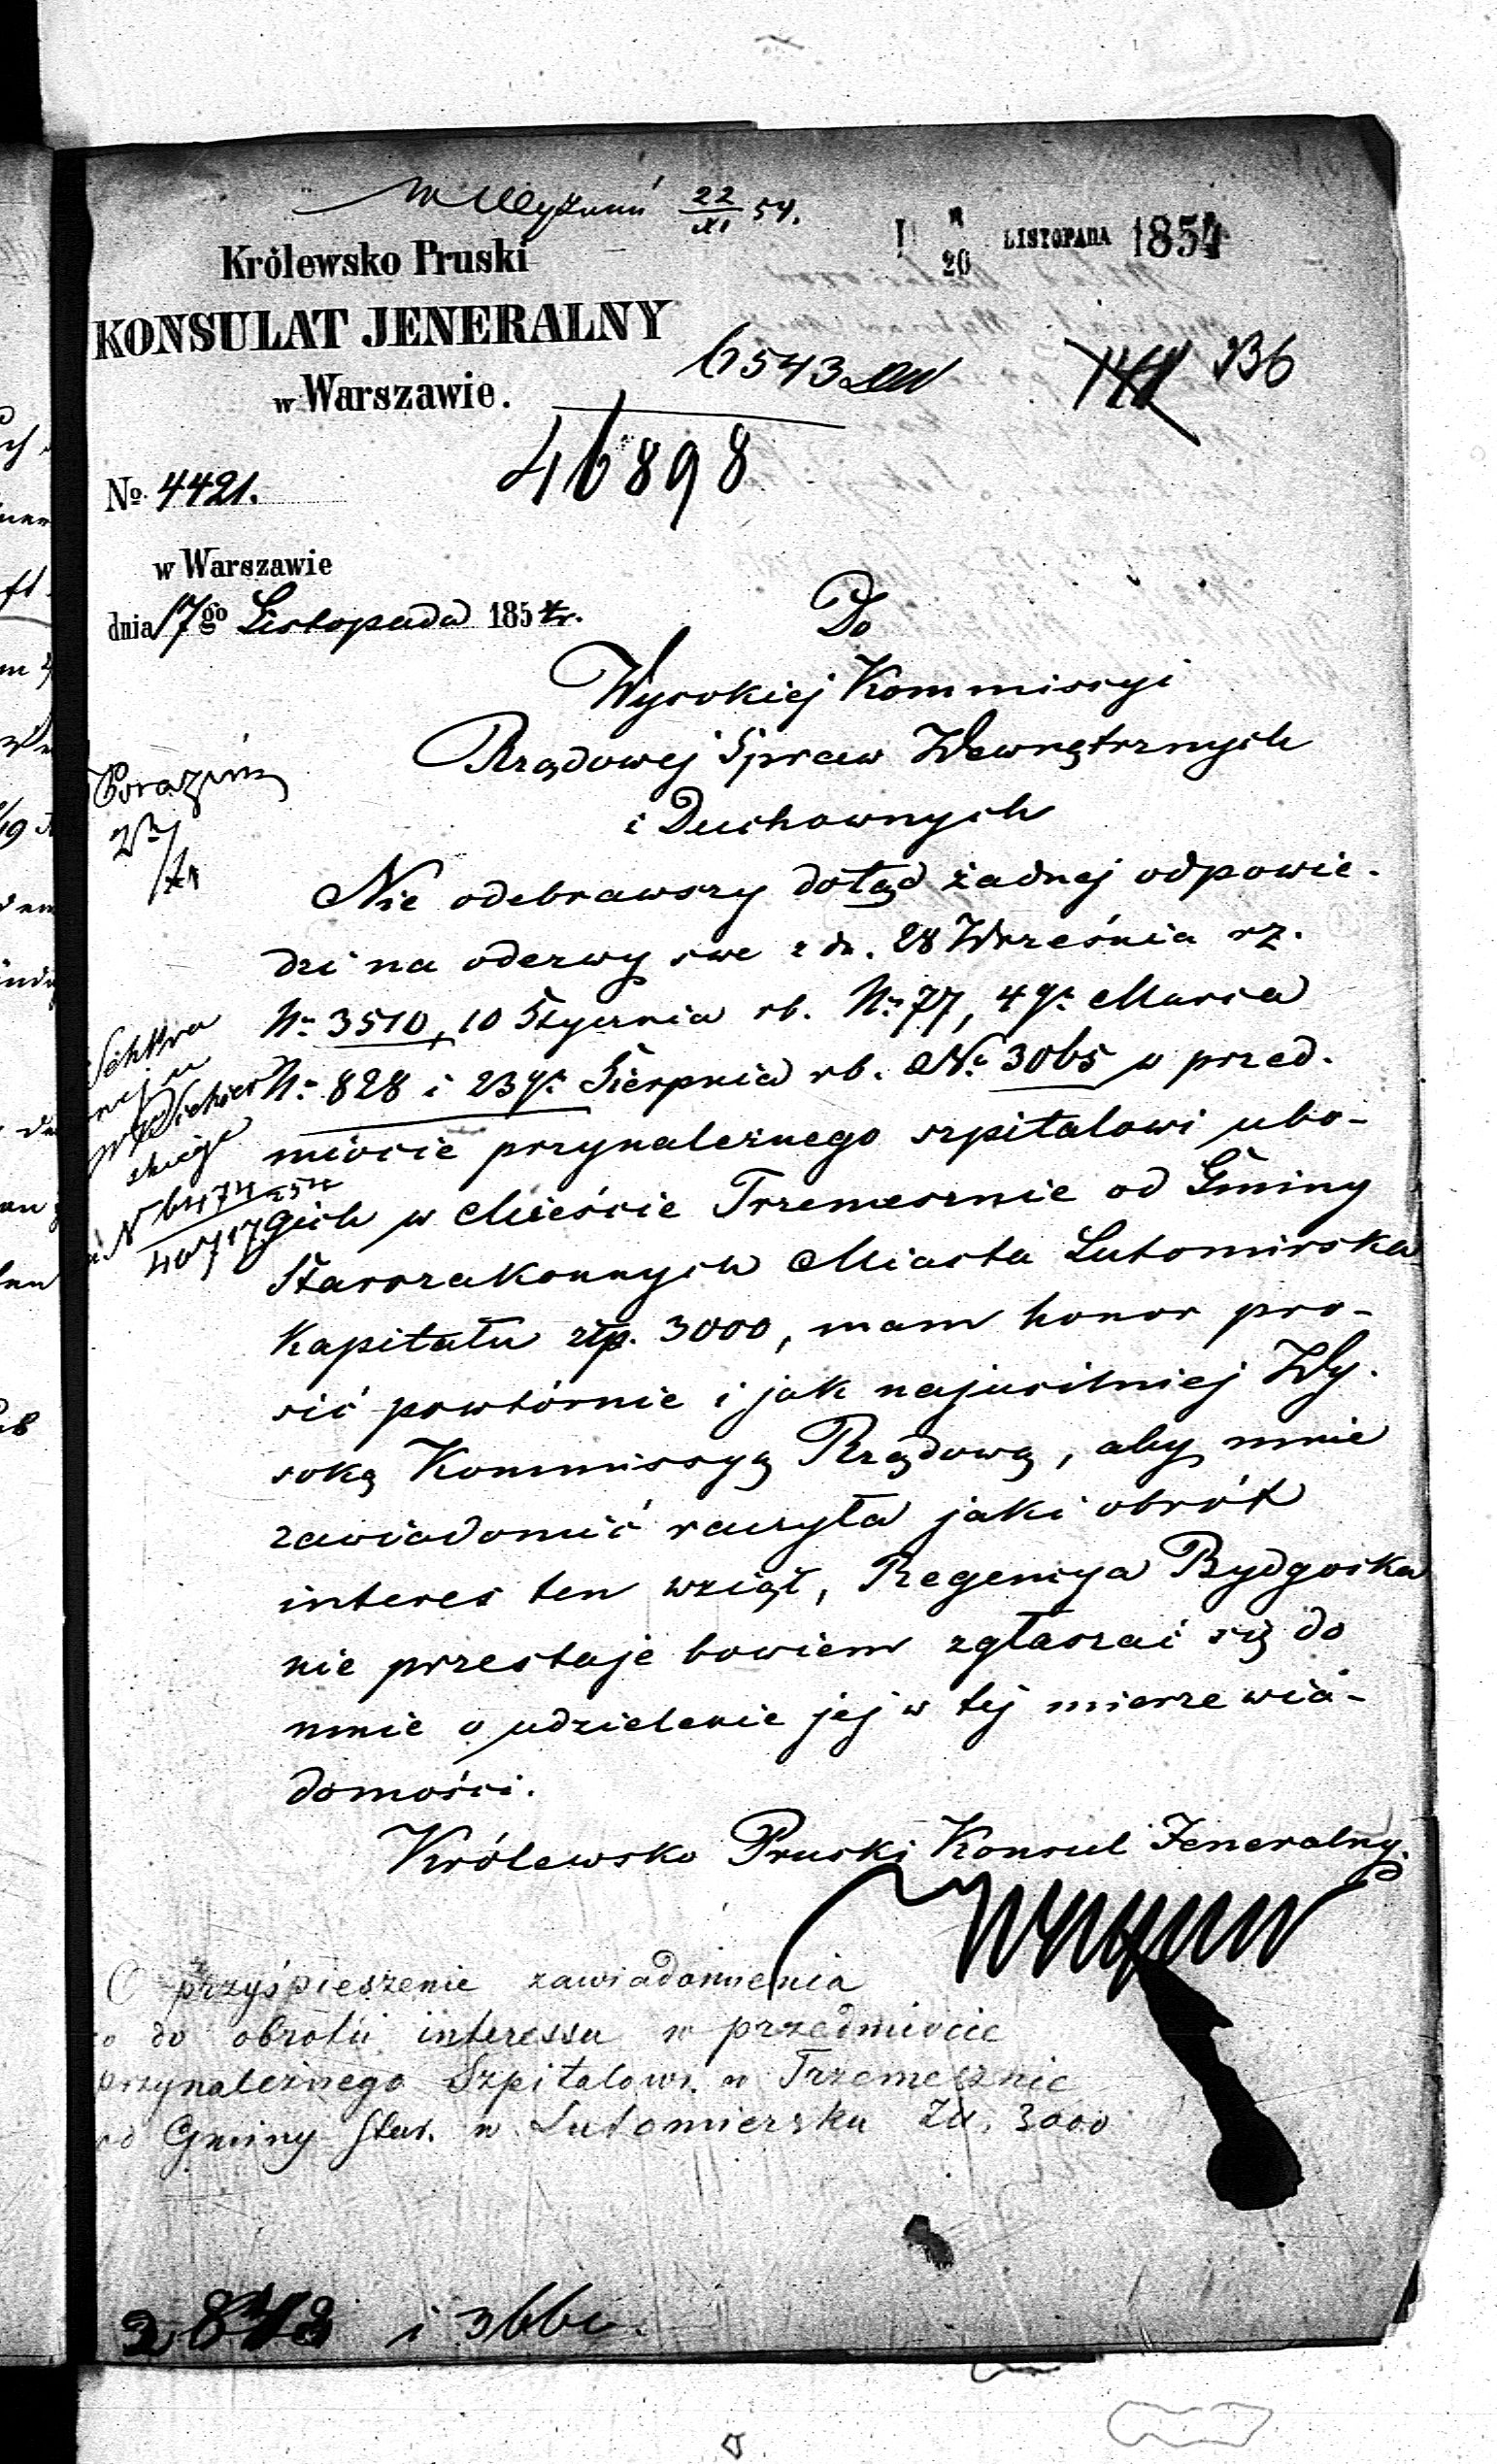 22/XI 54.
20 LISTOPADA 1854
Królewsko Pruski
KONSULAT JENERALNY
w Warszawie.
6543
136
46898
No. 4421.
w Warszawie
dnia 17go Listopada 1854r.
Do
Wysokiej Kommissyi
Rządowej Spraw Wewnętrznych
i Duchownych
Nie odebrawszy dotąd żadnej odpowie-
dzi na odezwy swe z dn. 28 Września rz.
Nr 3510, 10 Stycznia rb. Nr 77, 4go Marca
Nr 828 i 23go Sierpnia rb. No 3065 w przed-
miocie przynależnego szpitalowi ubo-
gich w Mieście Trzemesznie od Gminy
Starozakonnych Miasta Lutomirska
Kapitału złp. 3000, mam honor pro-
sić powtórnie i jak najusilniej Wy-
soką Kommissyą Rządową, aby mnie
zawiadomić raczyła jaki obrót
interes ten wziął, Regencya Bydgoska
nie przestaje bowiem zgłaszać się do
mnie o udzielenie jej w tej mierze wia-
domości.
Królewsko Pruski Konsul Jeneralny.
N 6474 54
40717
O przyśpieszenie zawiadomienia
co do obrotu interessu w przedmiocie
przynależnego Szpitalowi w Trzemesznie
od Gminy Star. w Lutomiersku Złt. 3000
i